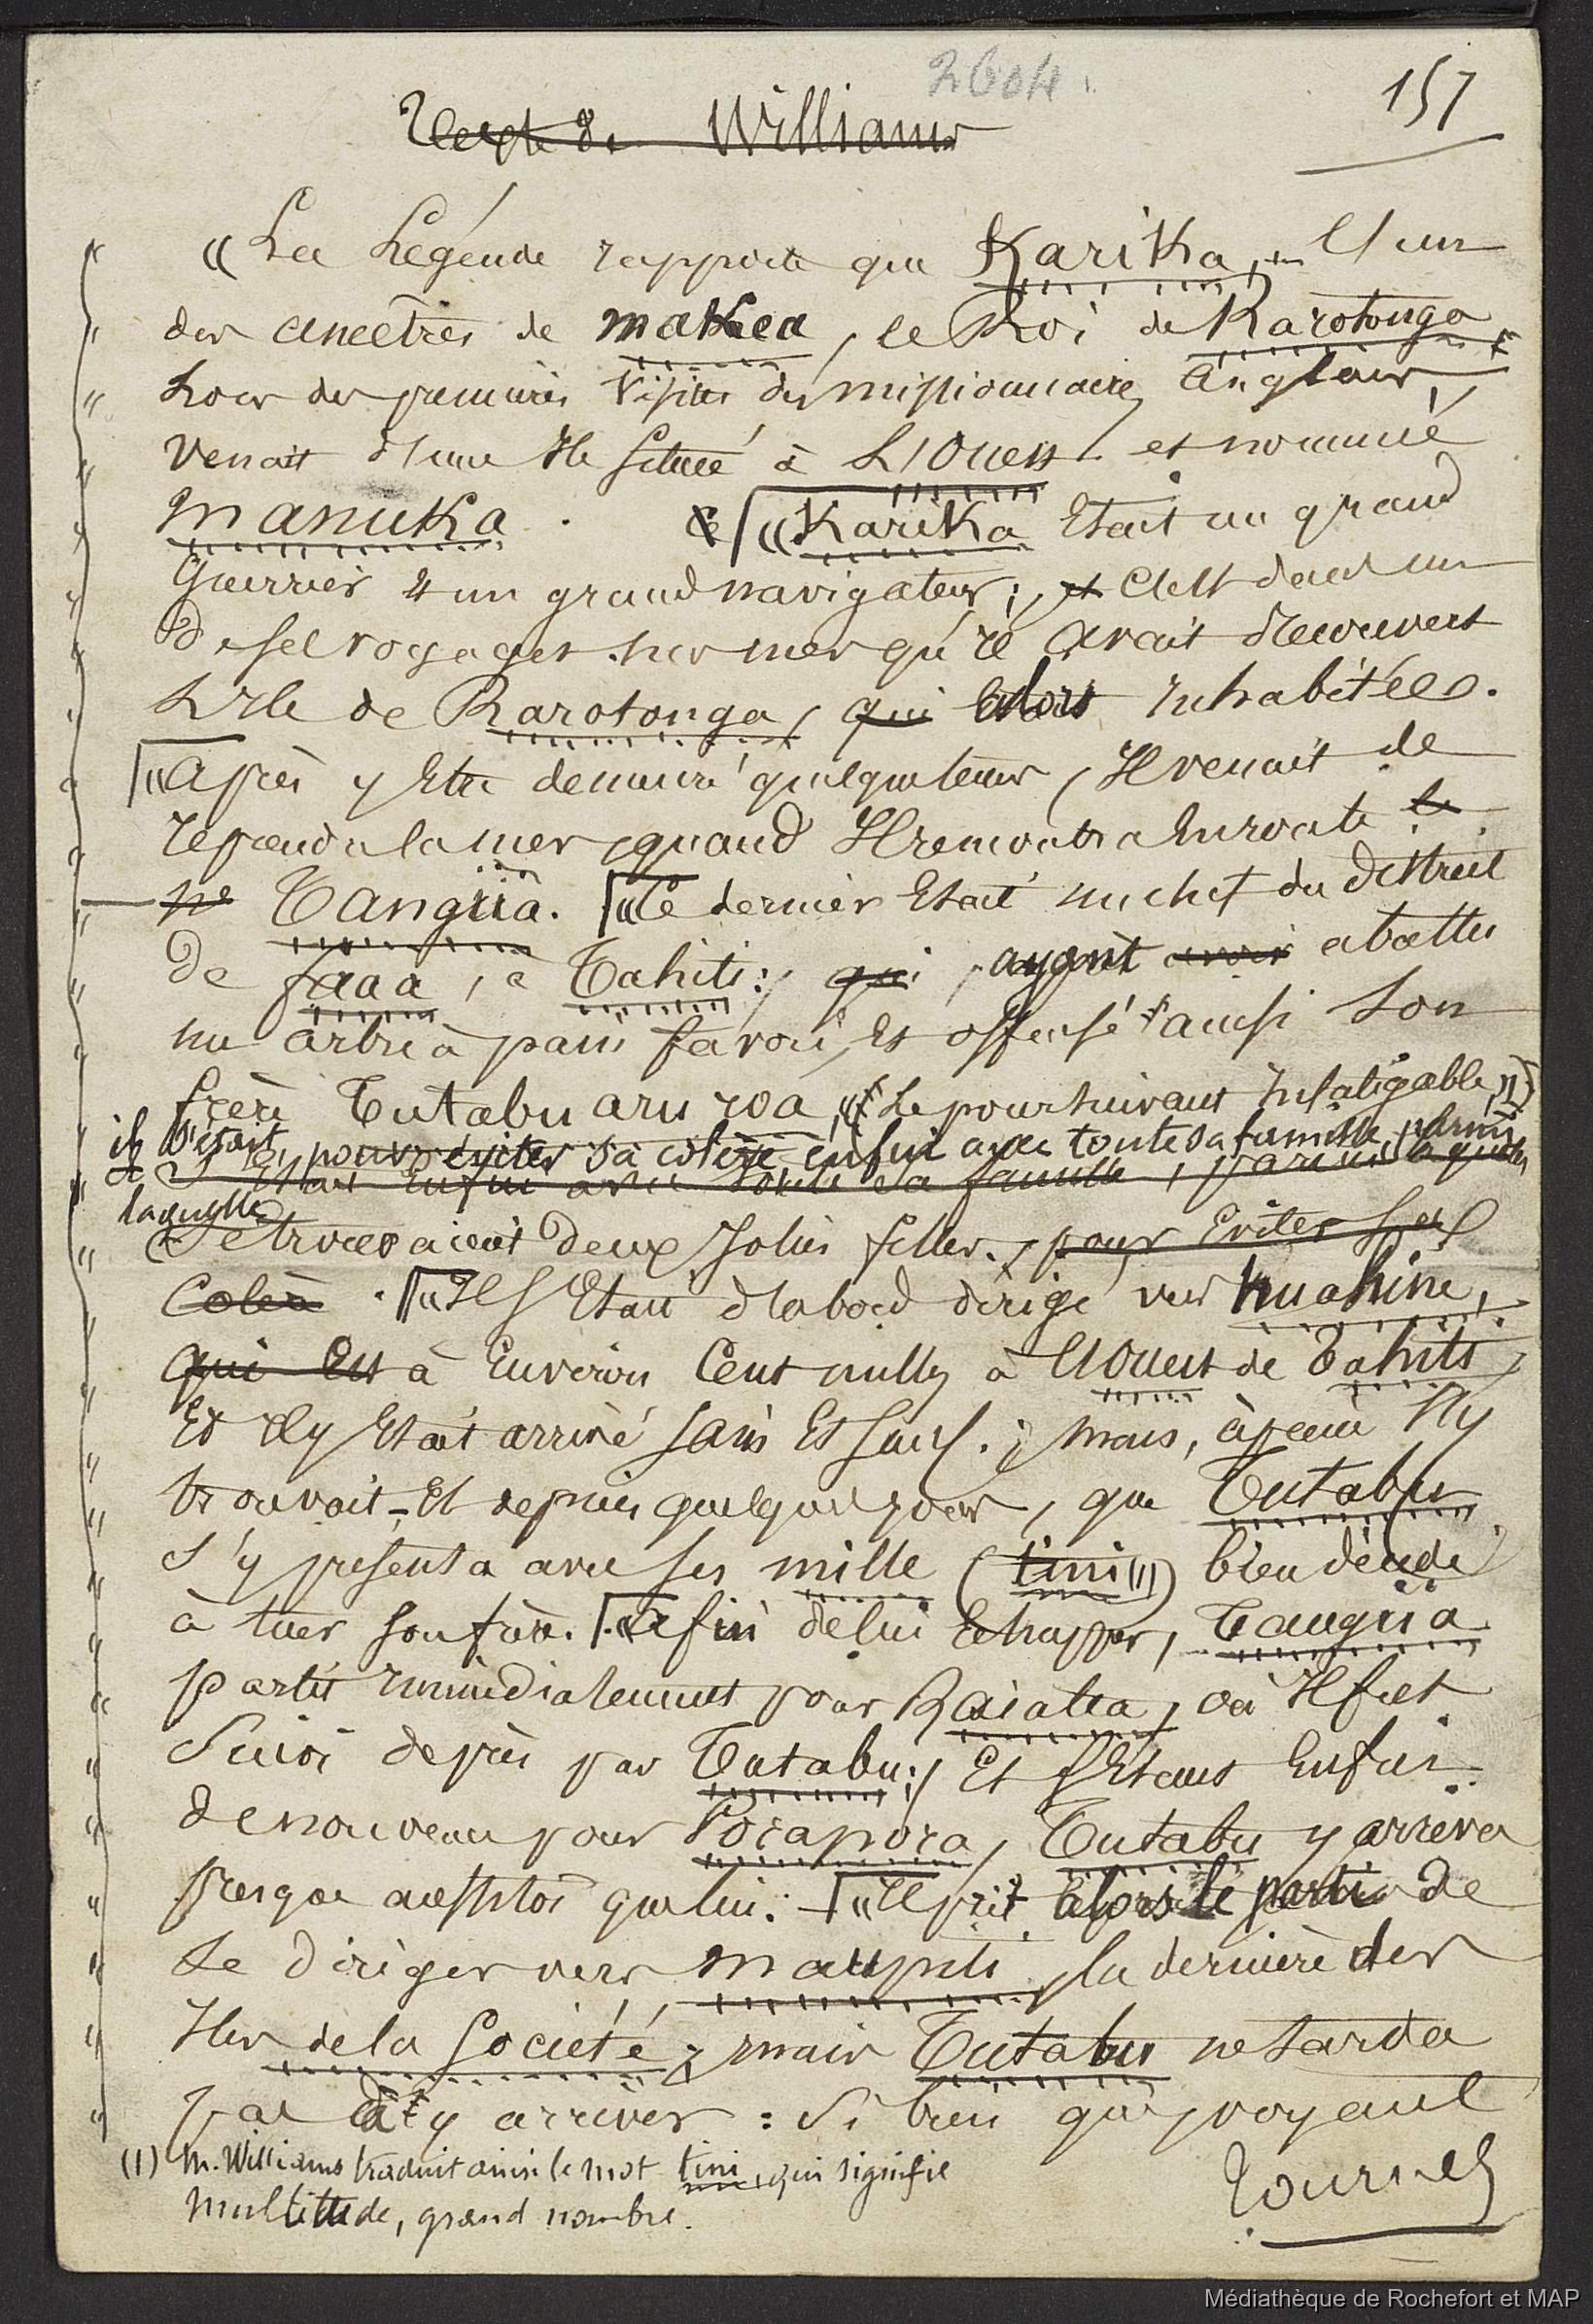 2604.
157
Texte de Williams
« La Légende rapporte que Karika, l'un
des ancêtres de Makea, le Roi de Rarotonga
Lors des premières visites des missionnaires anglais,
venait d'une Ile située à L'Ouest et nommée
Manuka. Ce « Karika Etait un grand
Guerrier & un grand navigateur; et C'est dans un
de ses voyages sur mer qu'il avait découvert
L'Ile de Rarotonga, qui alors Inhabitée.
« Après y Etre demeuré quelque temps, Il venait de
reprendre la mer, quand Il rencontra En route le
né Tangiia. « Ce dernier Etait un chef du District
de Faaa, à Tahiti; qui, ayant avoir abattu
un arbre à pain favori, Et offensé ainsi Son
frère Tutabu aru roa, « Le poursuivant Infatigable, »
il s'était, pour éviter sa colère, enfui avec toute sa famille, parmi
S'Etait Enfui avec toute sa famille, parmi laquelle
laquelle
Se trouvaient deux Jolies filles, pour Eviter sa
Colère. « Il S'Etait d'abord dirigé vers Huahine,
qui Est à Environ Cent milles à l'Ouest de Tahiti,
Et Il y Etait arrivé Sain Et Sauf.; Mais, à peine s'y
trouvait-Il depuis quelques jours, que Tutabu
S'y présenta avec ses mille (tini (1)) bien décidé
à tuer son frère. « Afin de lui Echapper, Tangiia
partit Immédiatement pour Raiatea, où Il fut
Suivi de près par Tutabu; Et S'Etant Enfui
de nouveau pour Porapora, Tutabu y arriva
presque aussitôt que lui. « Il prit alors le parti de
se diriger vers Maupiti, la dernière des
Iles de la Société; mais Tutabu ne tarda
pas à y arriver : Si bien que, voyant
(1) M. Williams traduit ainsi le mot tini, qui signifie
multitude, grand nombre.
Tournez
Médiathèque de Rochefort et MAP